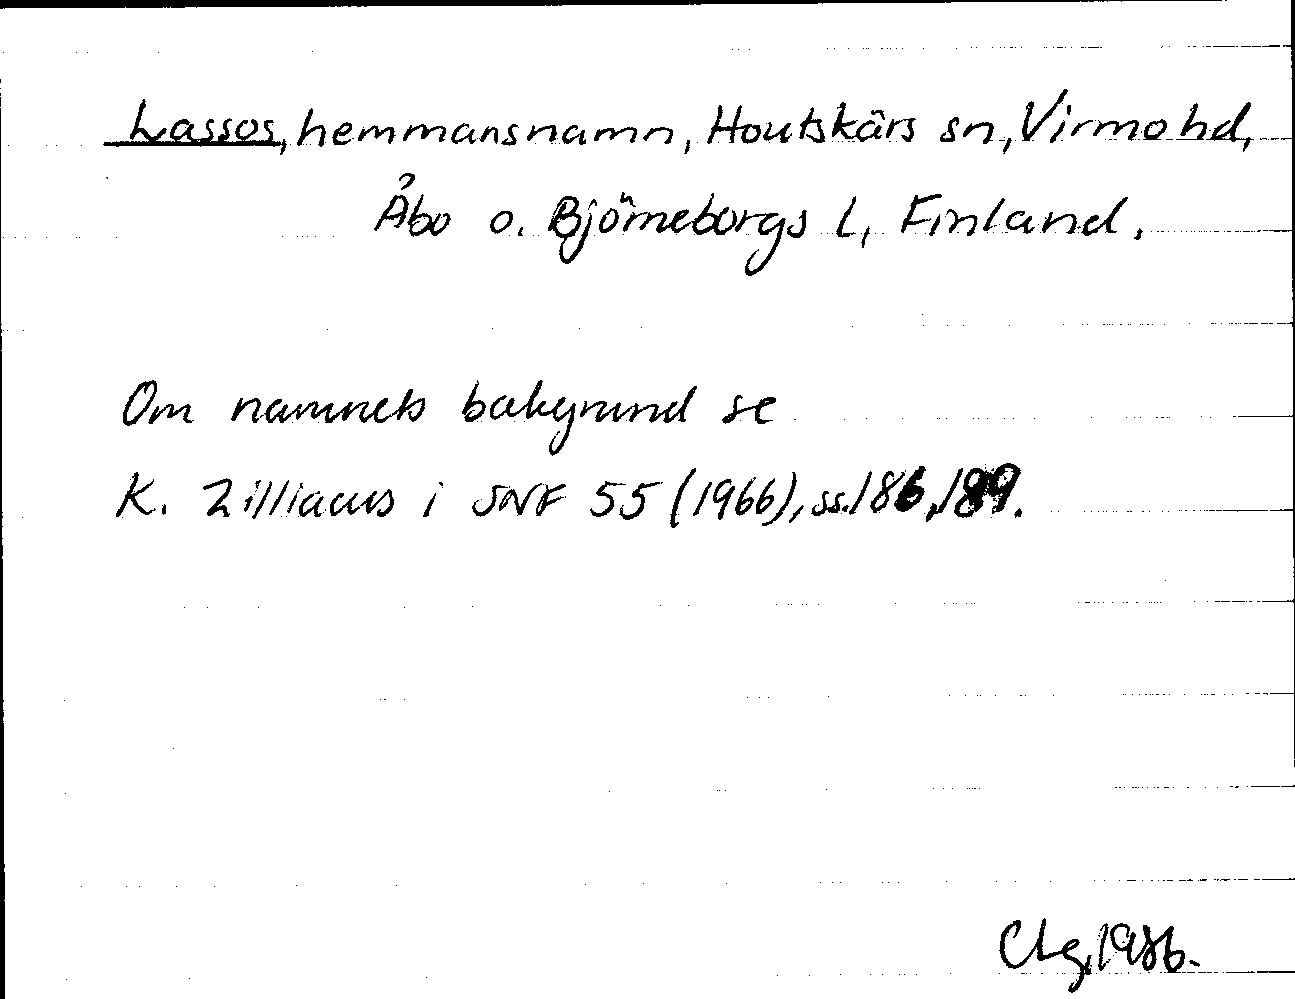 Lassos, hemmansnamn, Houtskärs sn, Virmo hd,
Åbo o. Björneborgs l, Finland.
Om namnets bakgrund se
K. Zilliacus i SNF 55 (1966), ss. 186, 189.
Clg, 1986.